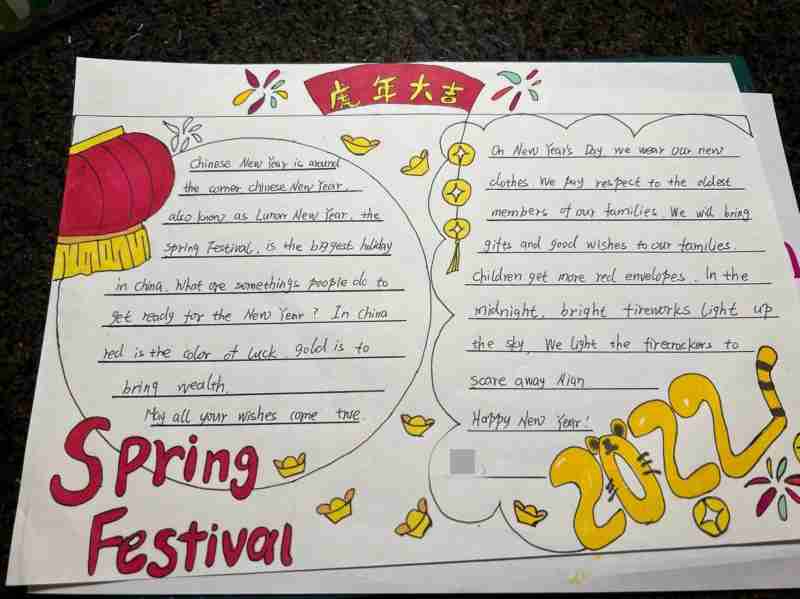 虎年大吉
Chinese New Year is around
the corner chinese New Year,
also know as Lunar New Year, the
spring Festival, is the biggest holiday
in china. What are somethings people do to
get ready for the New Year? In china
red is the color of luck. gold is to
bring wealth.
May all your wishes come true.
On New Year's Day we wear our new
clothes. We pay respect to the oldest
members of our families. We will bring
gifts and good wishes to our families.
Children get more red envelopes. In the
midnight, bright fireworks light up
the sky. We light the firecrackers to
scare away Nian
Happy New Year!
Spring
Festival
2022